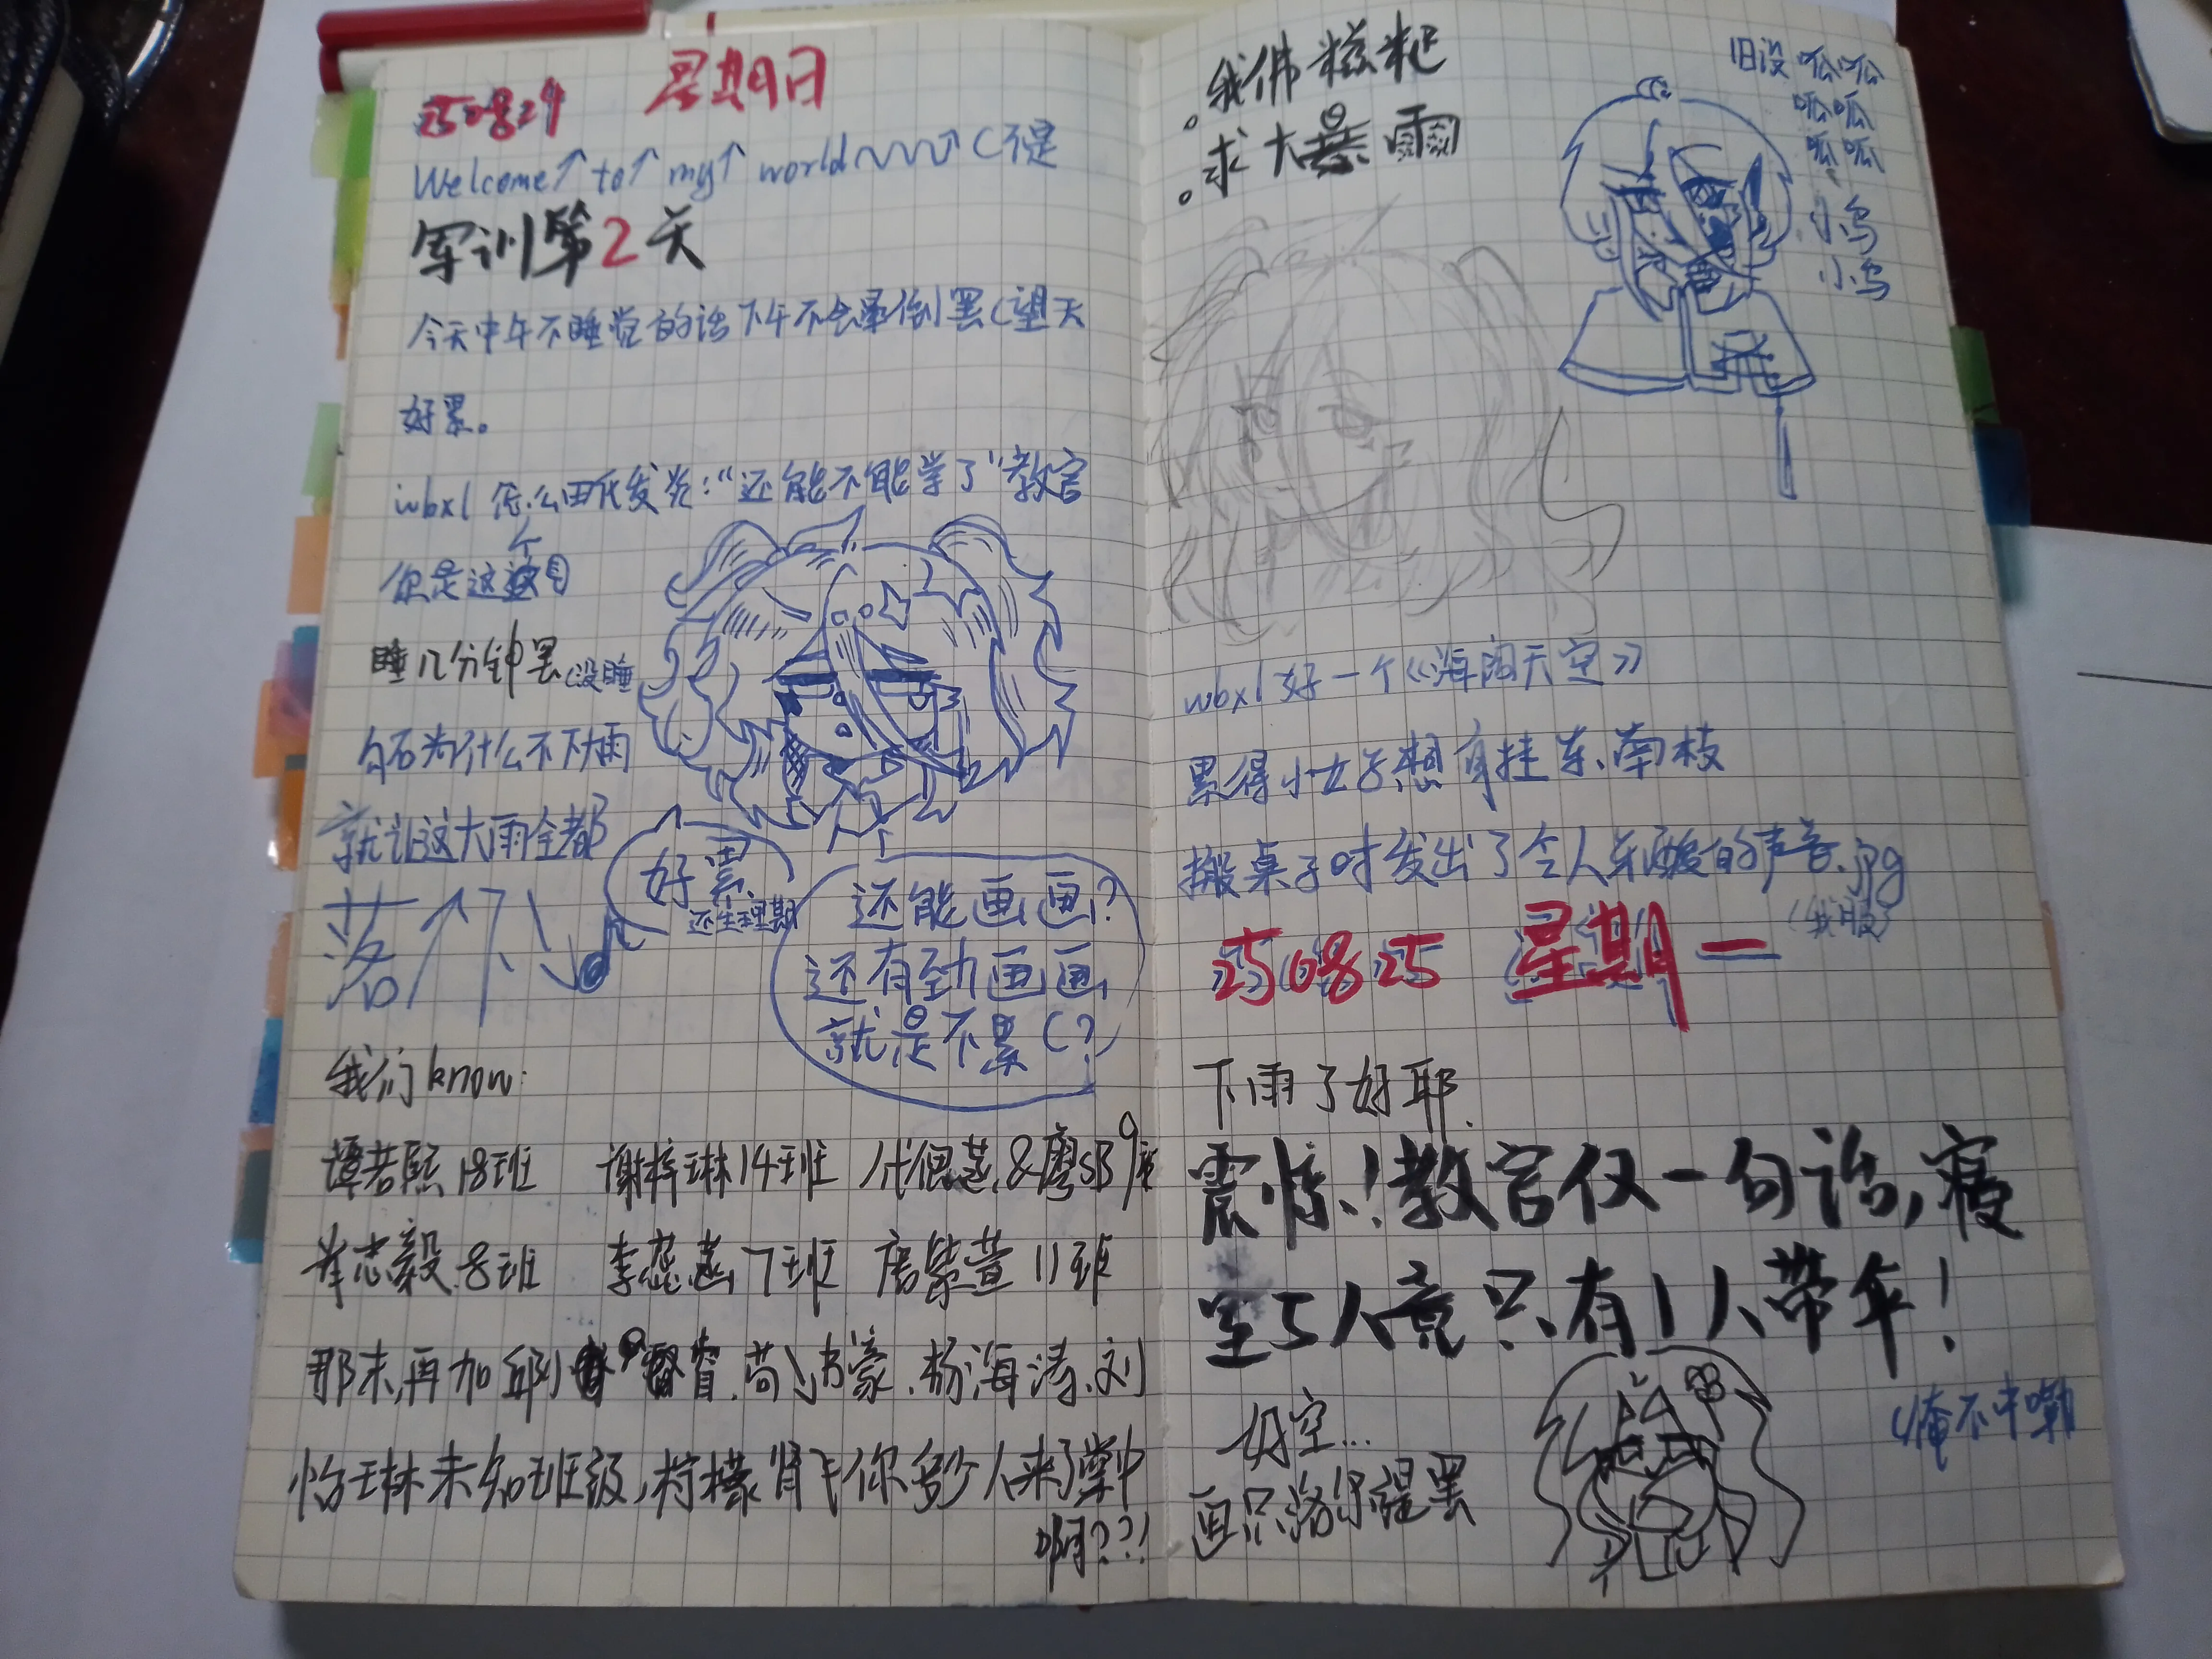 250824 星期日
Welcome↑ to↑ my↑ world (不是
军训第2天
今天中午不睡觉的话下午不会晕倒罢(望天
好累。
wbxl 怎么由氏发炎:"还能不能学了"教官
你是这个
睡几分钟罢(没睡
为什么不下雨
就让这大雨全都
落下
好累
还生理期
还能画画?
还有劲画画
就是不累(?
我们know:
谭若熙18班 谢梓琳14班 &廖SB9班
肖志毅8班 李蕊 7班 唐紫萱 11班
那末,再加邱 睿、苟 豪、杨海涛、刘
怡琳未知班级,柠檬 你多少人来了棠中
啊???!
我佛糍粑
求大暴雨
旧设 呱呱
呱呱
呱呱
小鸟
小鸟
wbxl 好一个《海阔天空》
累得小女子想自挂东南枝
搬桌子时发出了令人牙酸的声音.jpg
(我服)
250825 星期一
下雨了好耶.
震惊!教官仅一句话,寝
室5人竟只有1人带伞!
好空...
画只洛伊缇罢
(俺不中嘞